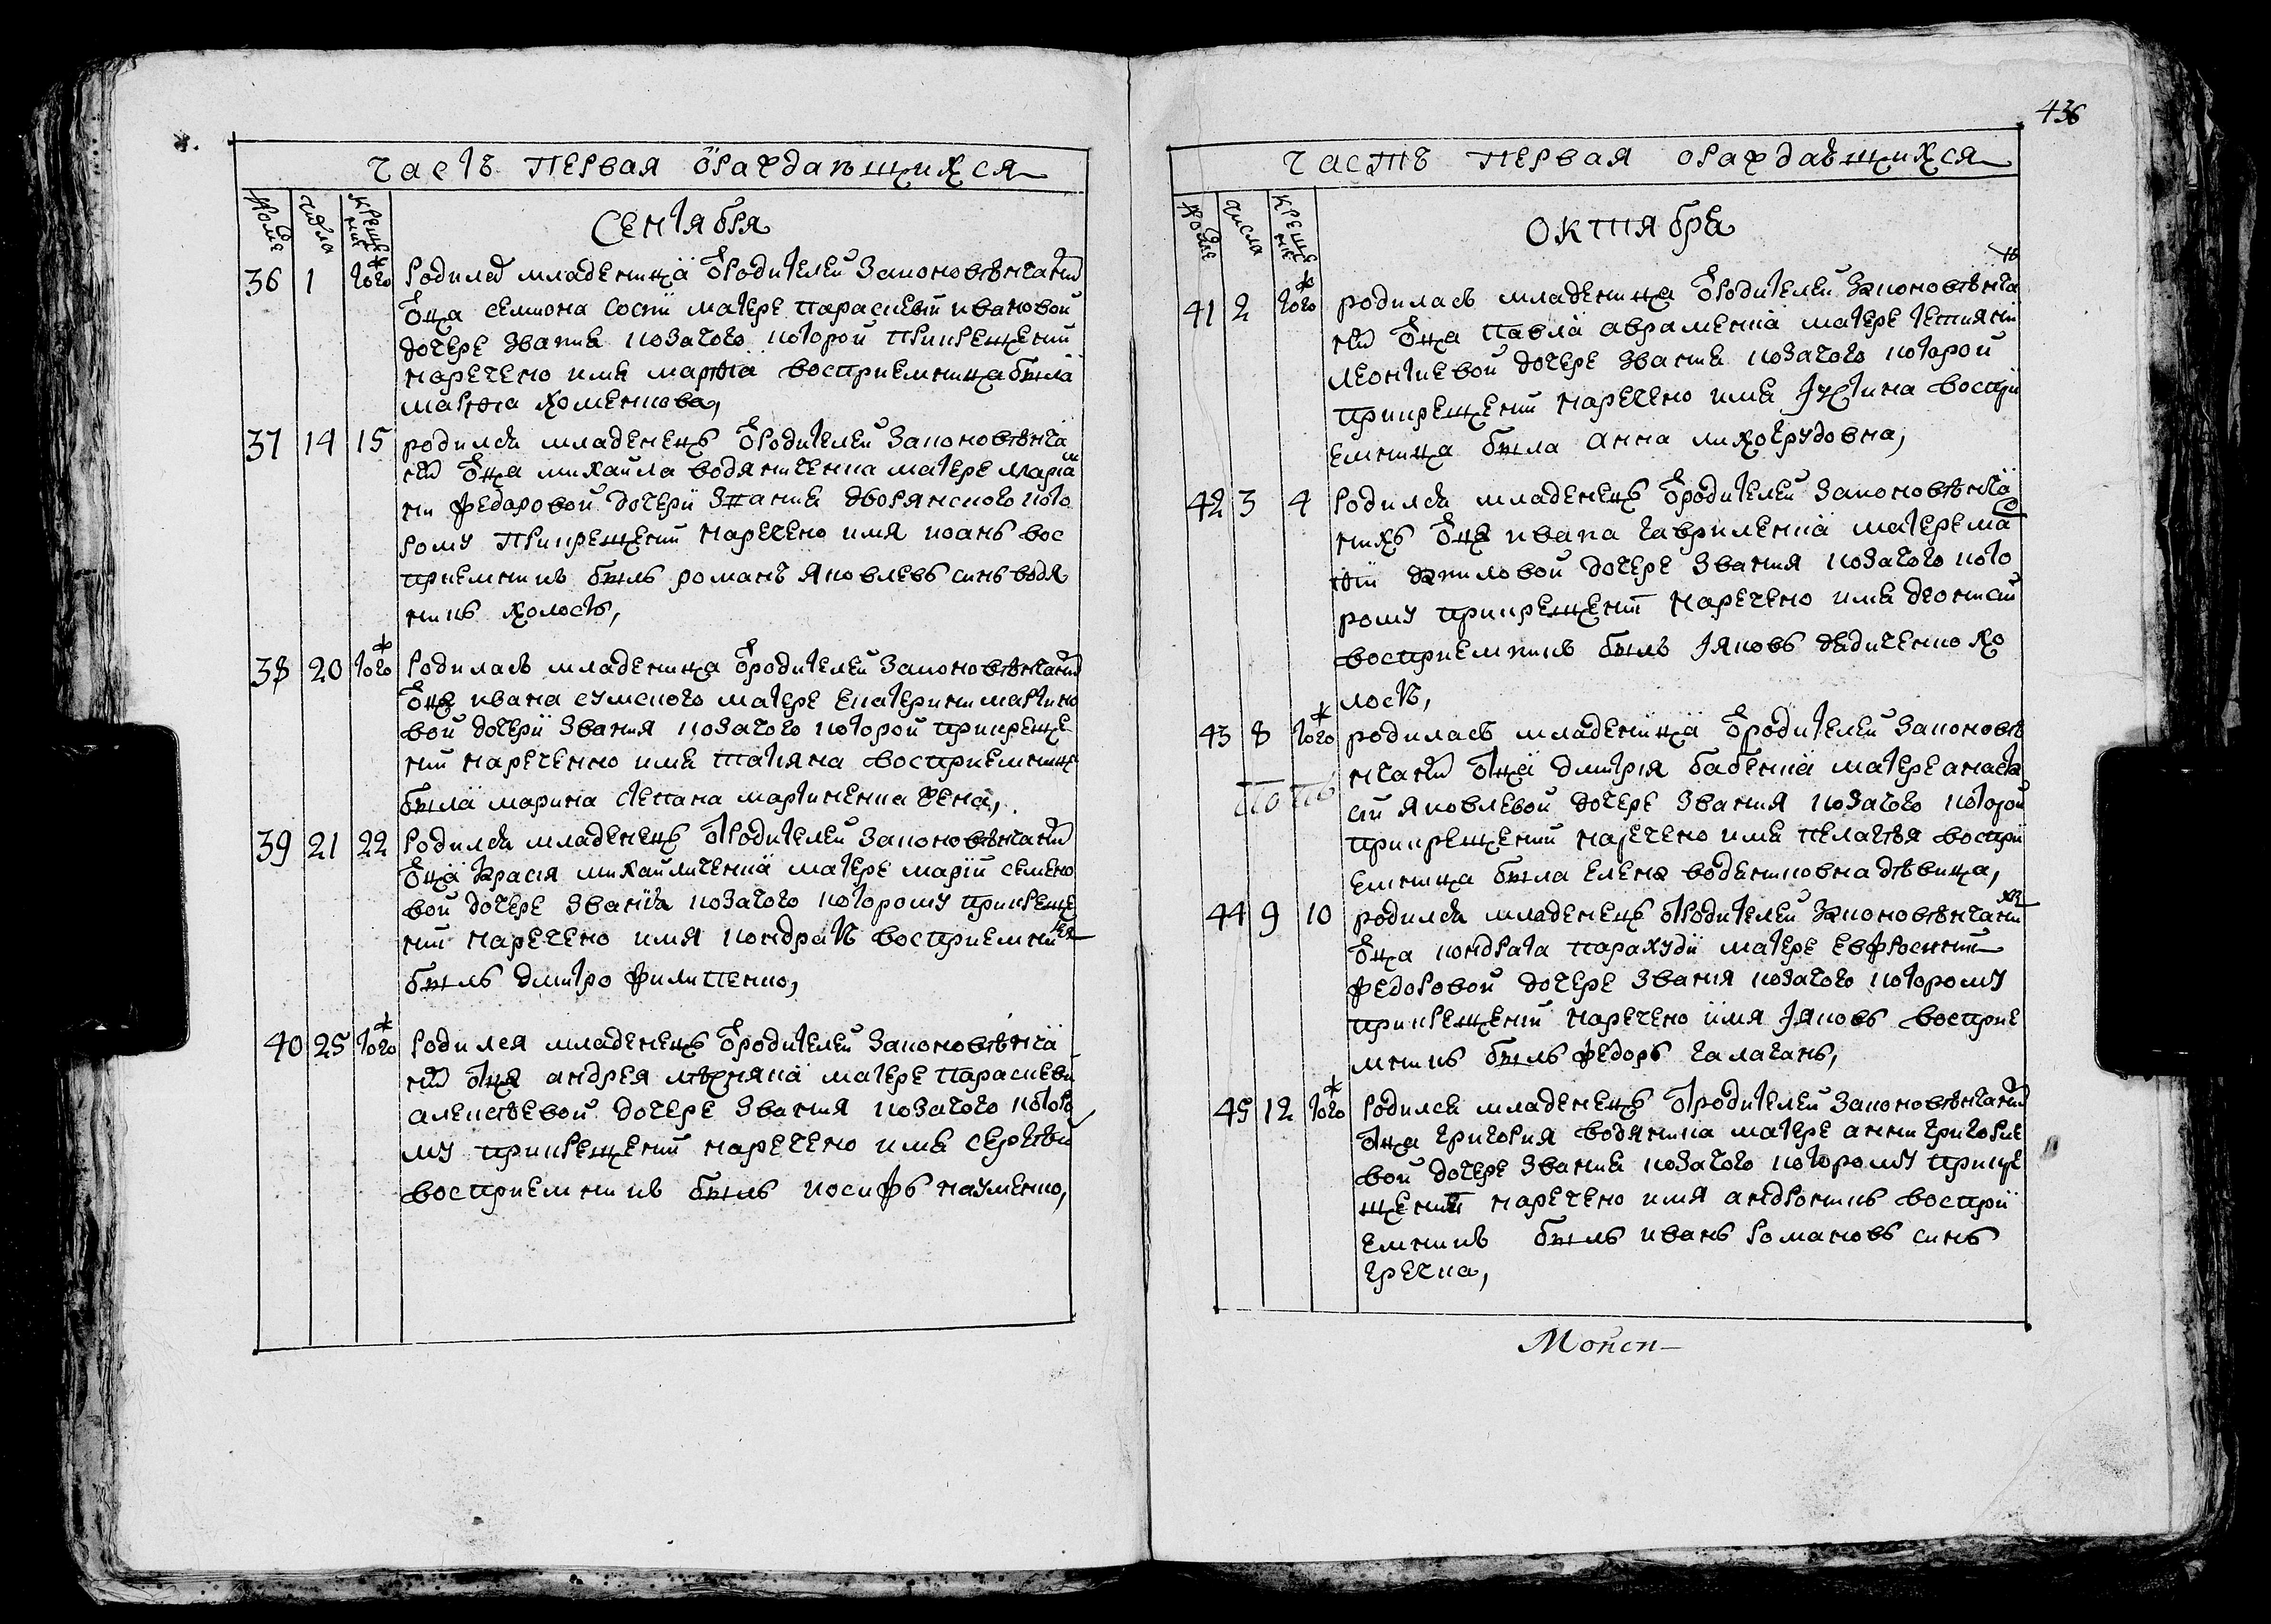 часть первая ораждающихся
номе числа крещение
Сентября
36 1 того родилась младеница от родителей законовѣнчаних
отца семиона сосни матере параскевии ивановой
дочере звания козачого которой при крещении
наречено имя марѳia восприемница была
марѳа хоменкова,
37 14 15 родился младенецъ от родителей законовѣнча
них отца михаила водяниченка матере марiи
федоровой дочерi звания дворянского кото
рому при крещении наречено имя иоанъ вос
приемникъ былъ романъ яковлевъ синъ водя
никъ холостъ,
38 20 того родилась младеница от родителей законовѣнчаних
отца ивана сумского матере екатерини мартино
вой дочерi звания козачого которой при креще
нии наречено имя татiяна восприемница
была марина степана мартиненка жена,
39 21 22 родился младенецъ от родителей законовѣнчаних
отца михайличенка матере марiи семено
вой дочере звания козачого которому при креще
нии наречено имя кондратъ восприемникъ
былъ дмитро филипенко,
40 25 того родился младенецъ от родителей законовѣнча
них отца андрея матере параскеви
алексѣевой дочере звания козачого которо
му при крещении наречено имя сергѣй
восприемникъ былъ иосифъ науменко,
436
часть первая ораждающихся
номе числа крещение
октября
41 2 того родилась младеница от родителей законовѣнча
них отца павла авраменка матере тетияни
леонтиевой дочере звания козачого которой
при крещении наречено имя Iустина воспри
емница была анна лихогрудовна,
42 3 4 родился младенецъ от родителей законовѣнча
нихъ отца ивана гавриленка матере ма
рѳiи даниловой дочере звания козачого кото
рому при крещении наречено имя деонисий
восприемникъ былъ Iяковъ дедиченко хо
лостъ,
43 8 того родилась младеница от родителей законовѣ
нчаних отца дмитрiя бабенка матере анаста
сiи яковлевой дочере звания козачого которой
при крещении наречено имя пелагѣя воспри
емница была елена водениковна дѣвица,
44 9 10 родился младенецъ от родителей законовѣнчаних
отца кондрата парахудi матере евфросинии
федоровой дочере звания козачого которому
при крещении наречено имя Iяковъ восприе
мникъ былъ федоръ галаганъ,
45 12 того родился младенецъ от родителей законовѣнчаних
отца григория водяника матере анни григорие
вой дочере звания козачого которому при кре
щении наречено имя андроникъ воспри
емникъ былъ иванъ романовъ синъ
гречка,